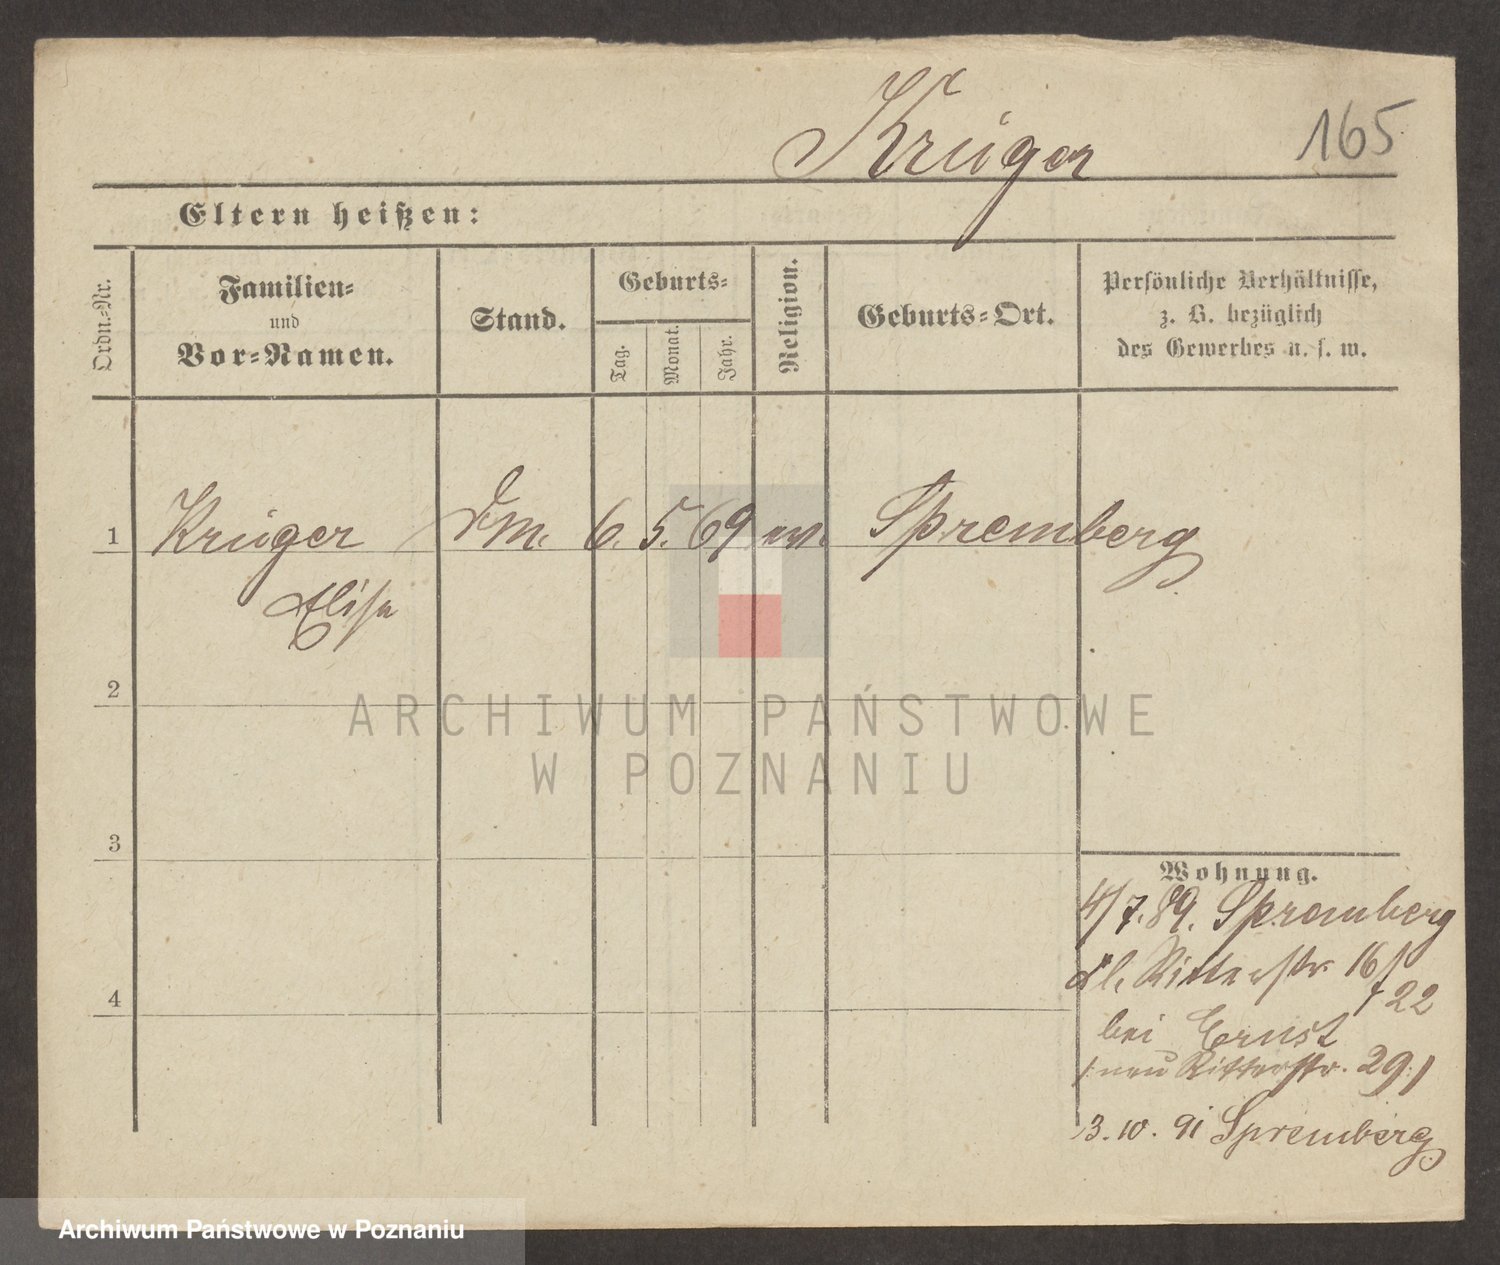 Krüger
165
Eltern heißen:
Ordn.-Nr.
Familien-
und
Vor-Namen.
Stand.
Geburts-
Tag.
Monat.
Jahr.
Religion.
Geburts-Ort.
Persönliche Verhältnisse,
z. B. bezüglich
des Gewerbes u. s. w.
1 Krüger 6. 5. 69 ev. Spremberg
Elise
2
ARCHIWUM PAŃSTWOWE
W POZNANIU
3
Wohnung.
4/7. 89. Spremberg
kl. Ritterstr. 16/
22
4
bei Ernst
/: neu Ritterstr. 29 :/
3. 10. 91 Spremberg
Archiwum Państwowe w Poznaniu